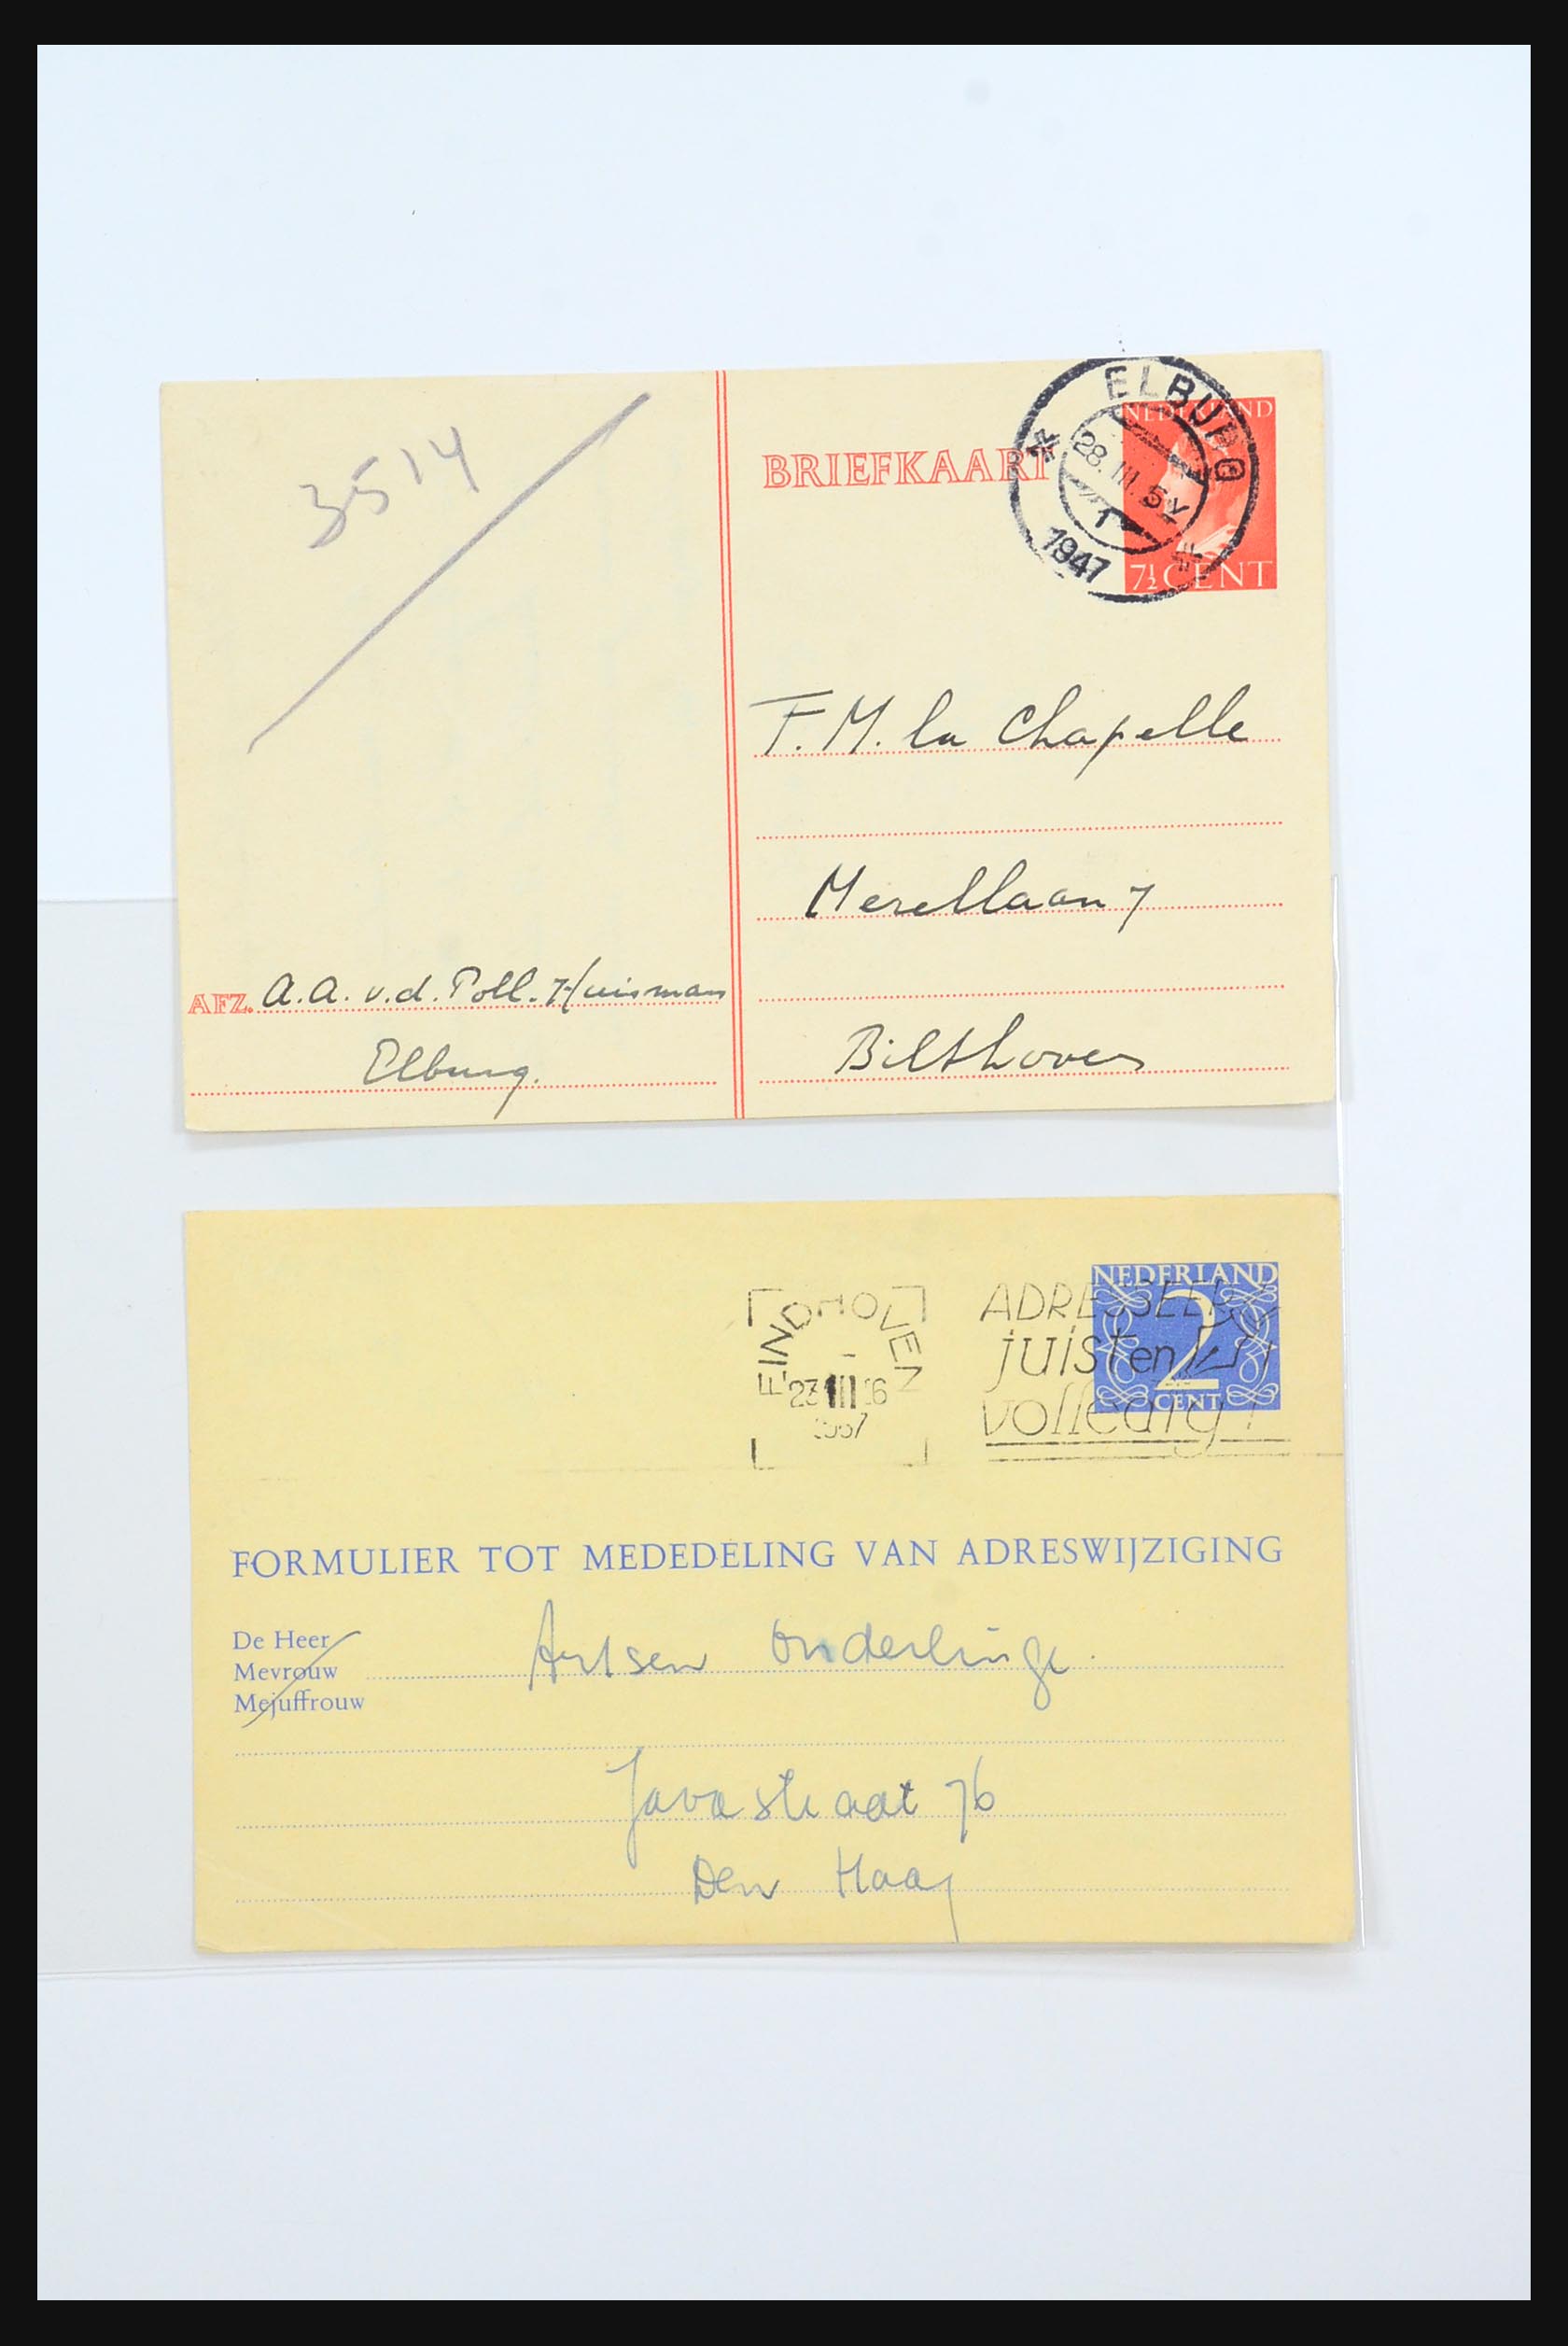 3514
BRIEFKAART
ELBURG
28.III.5V
1
1947
NEDERLAND
7½ CENT
F. M. la Chapelle
Merellaan 7
Bilthoven
AFZ. A. A. v.d. Poll-Huisman
Elburg.
EINDHOVEN
23 III 16
ADRESSEER
juist en
volledig!
NEDERLAND
2
CENT
FORMULIER TOT MEDEDELING VAN ADRESWIJZIGING
De Heer
Mevrouw
Mejuffrouw
Artsen Onderlinge.
Javastraat 76
Den Haag